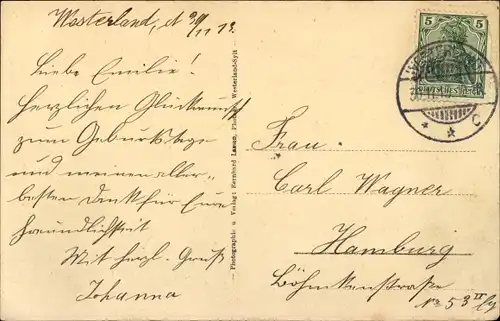 Westerland, d 30/11 13.
Liebe Emilie!
Herzlichen Glückwunsch
zum Geburtstage
und meinen aller-
besten Dank für Eure
Freundlichkeit
Mit herzl. Gruß
Johanna
Photographie u Verlag: Bernhard Lassen, Westerland-Sylt
5 5
DEUTSCHES REICH
* * C
Frau
Carl Wagner
Hamburg
Böhmkenstraße
No 53 IV